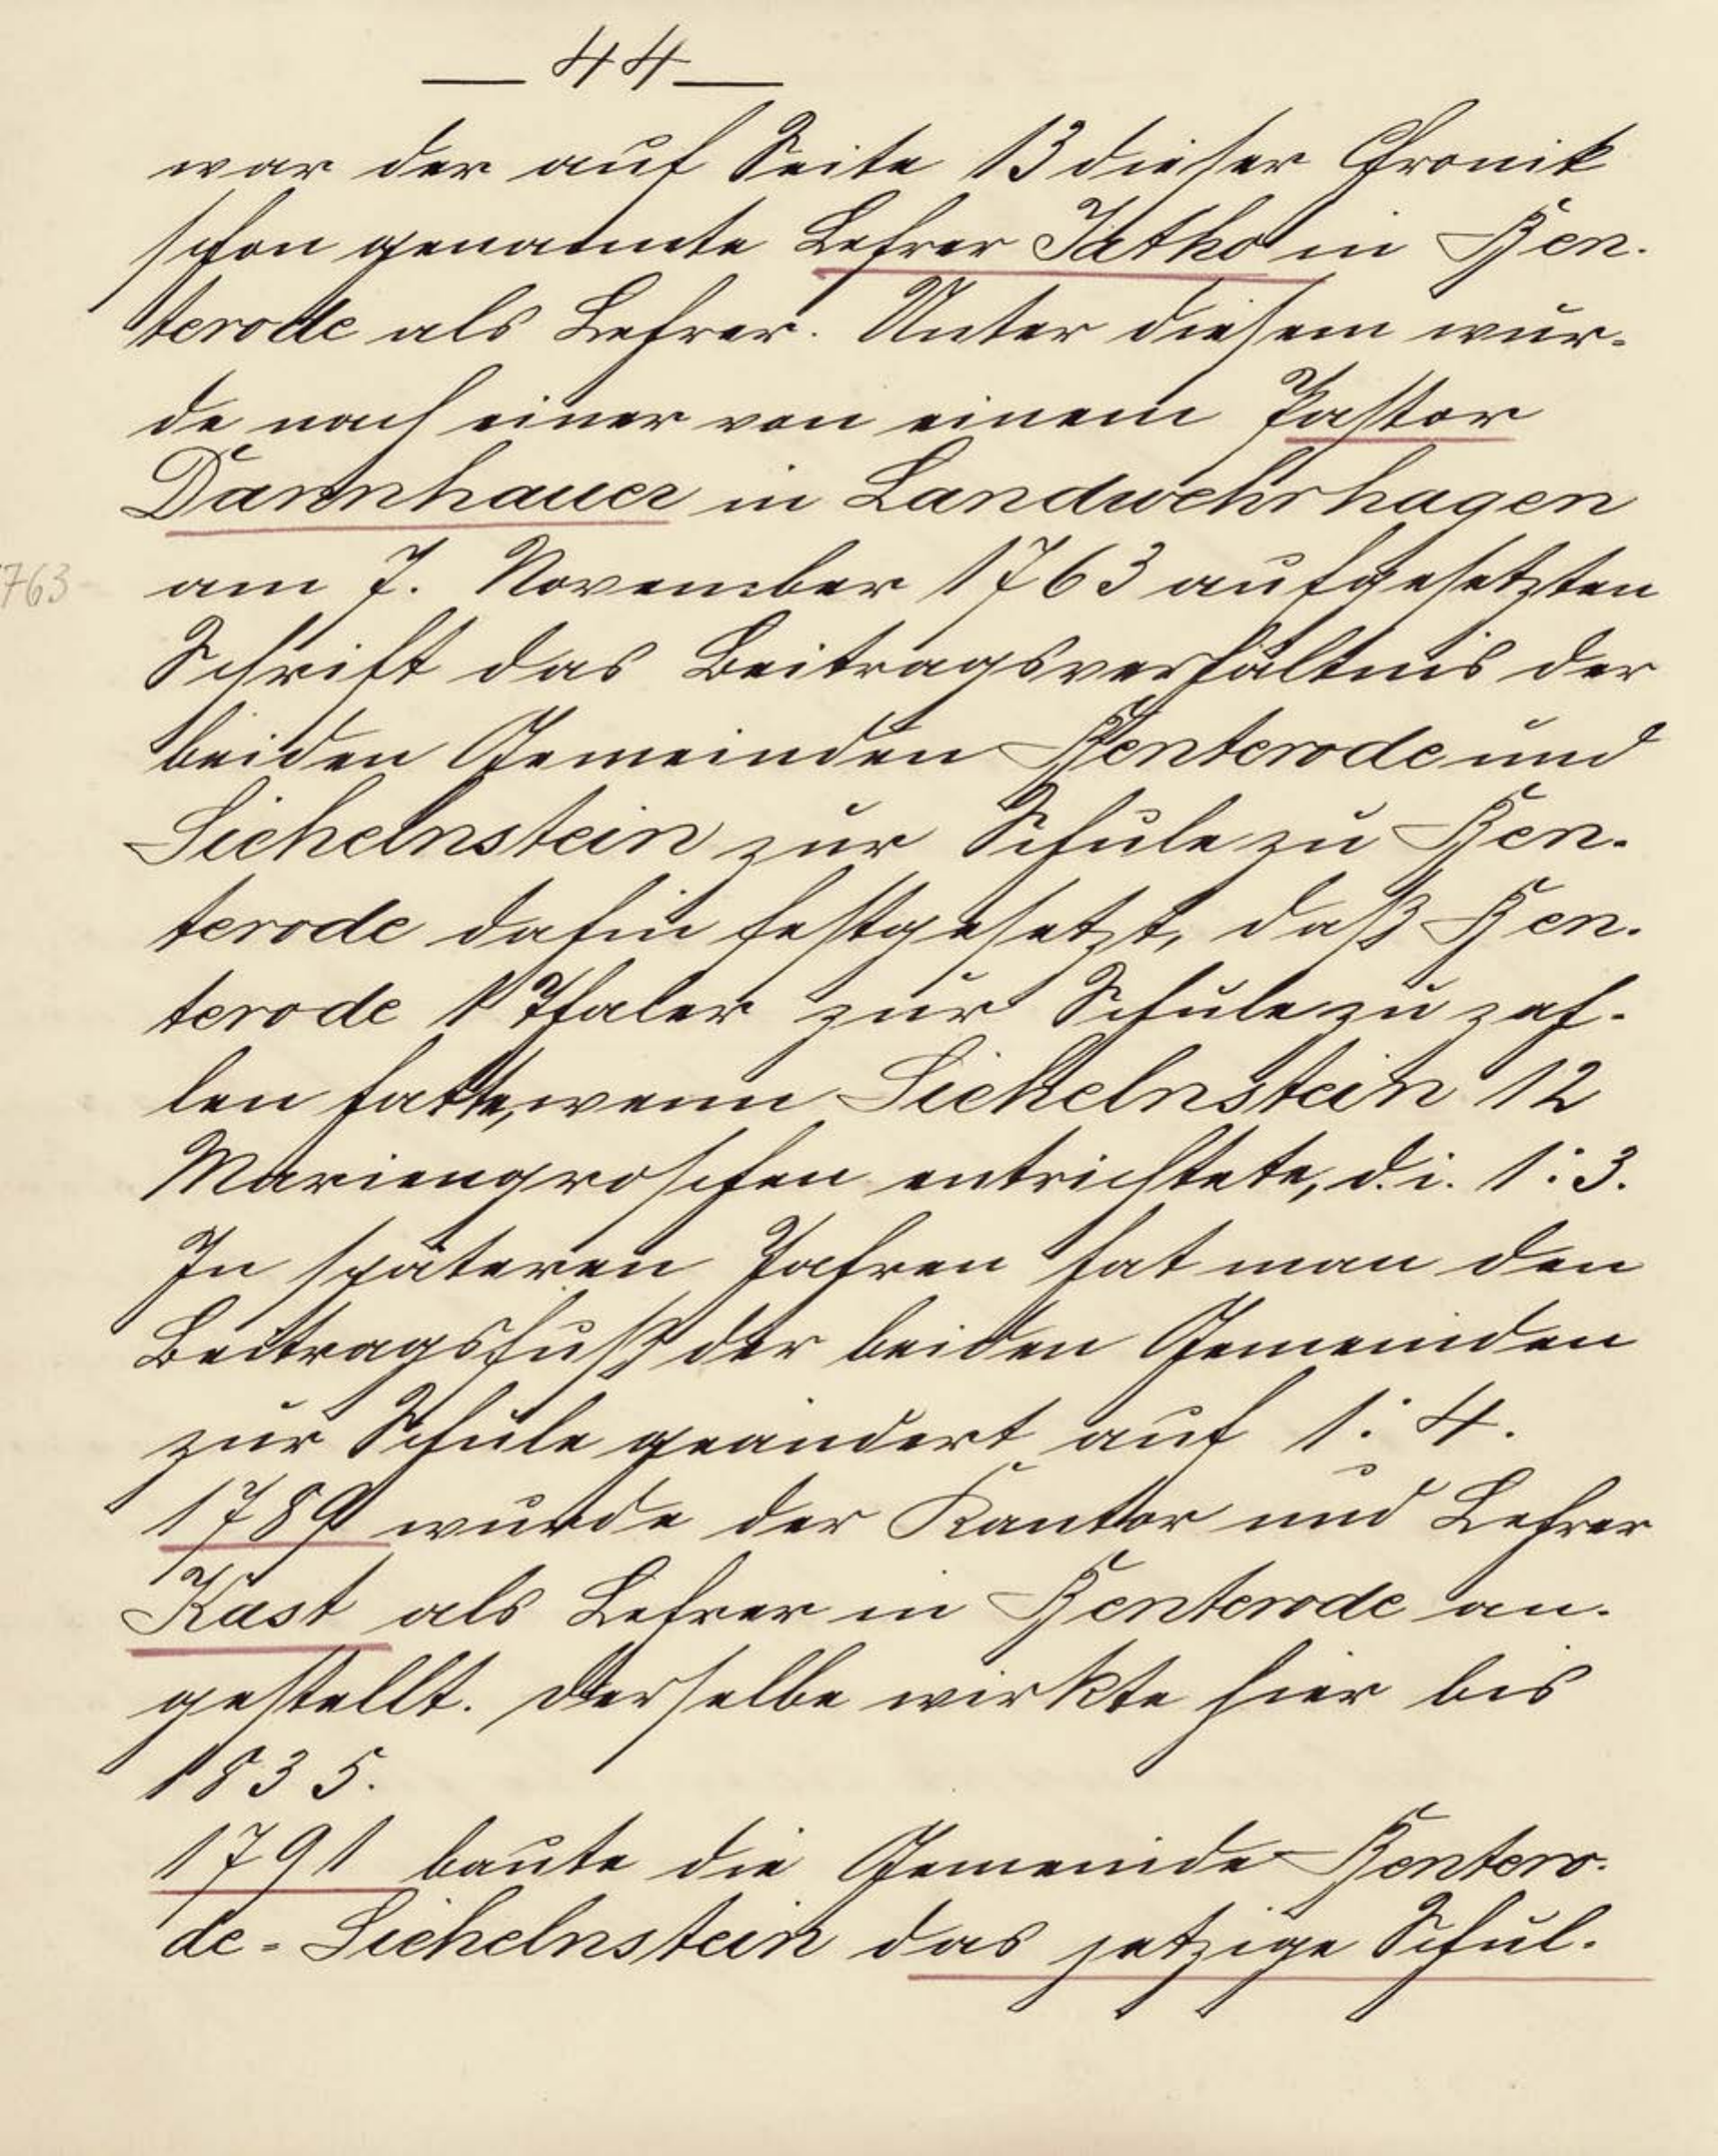 — 44 —
war der auf Seite 13 dieser Chronik
schon genannte Lehrer Jatho in Ben-
terode als Lehrer. Unter diesem wur-
de nach einer von einem Pastor
Dannhauer in Landwehrhagen
1763
am 7. November 1763 aufgesetzten
Schrift das Beitragsverhältnis der
beiden Gemeinden Benterode und
Sichelnstein zur Schule zu Ben-
terode dahin festgesetzt, daß Ben-
terode 1 Thaler zur Schule zu zah-
len hatte, wenn Sichelnstein 12
Mariengroschen entrichtete, d. i. 1:3.
In späteren Jahren hat man den
Beitragsfuß der beiden Gemeinden
zur Schule geändert auf 1:4.
1789 wurde der Kantor und Lehrer
Kast als Lehrer in Benterode an-
gestellt. Derselbe wirkte hier bis
1835.
1791 baute die Gemeinde Bentero-
de-Sichelnstein das jetzige Schul-